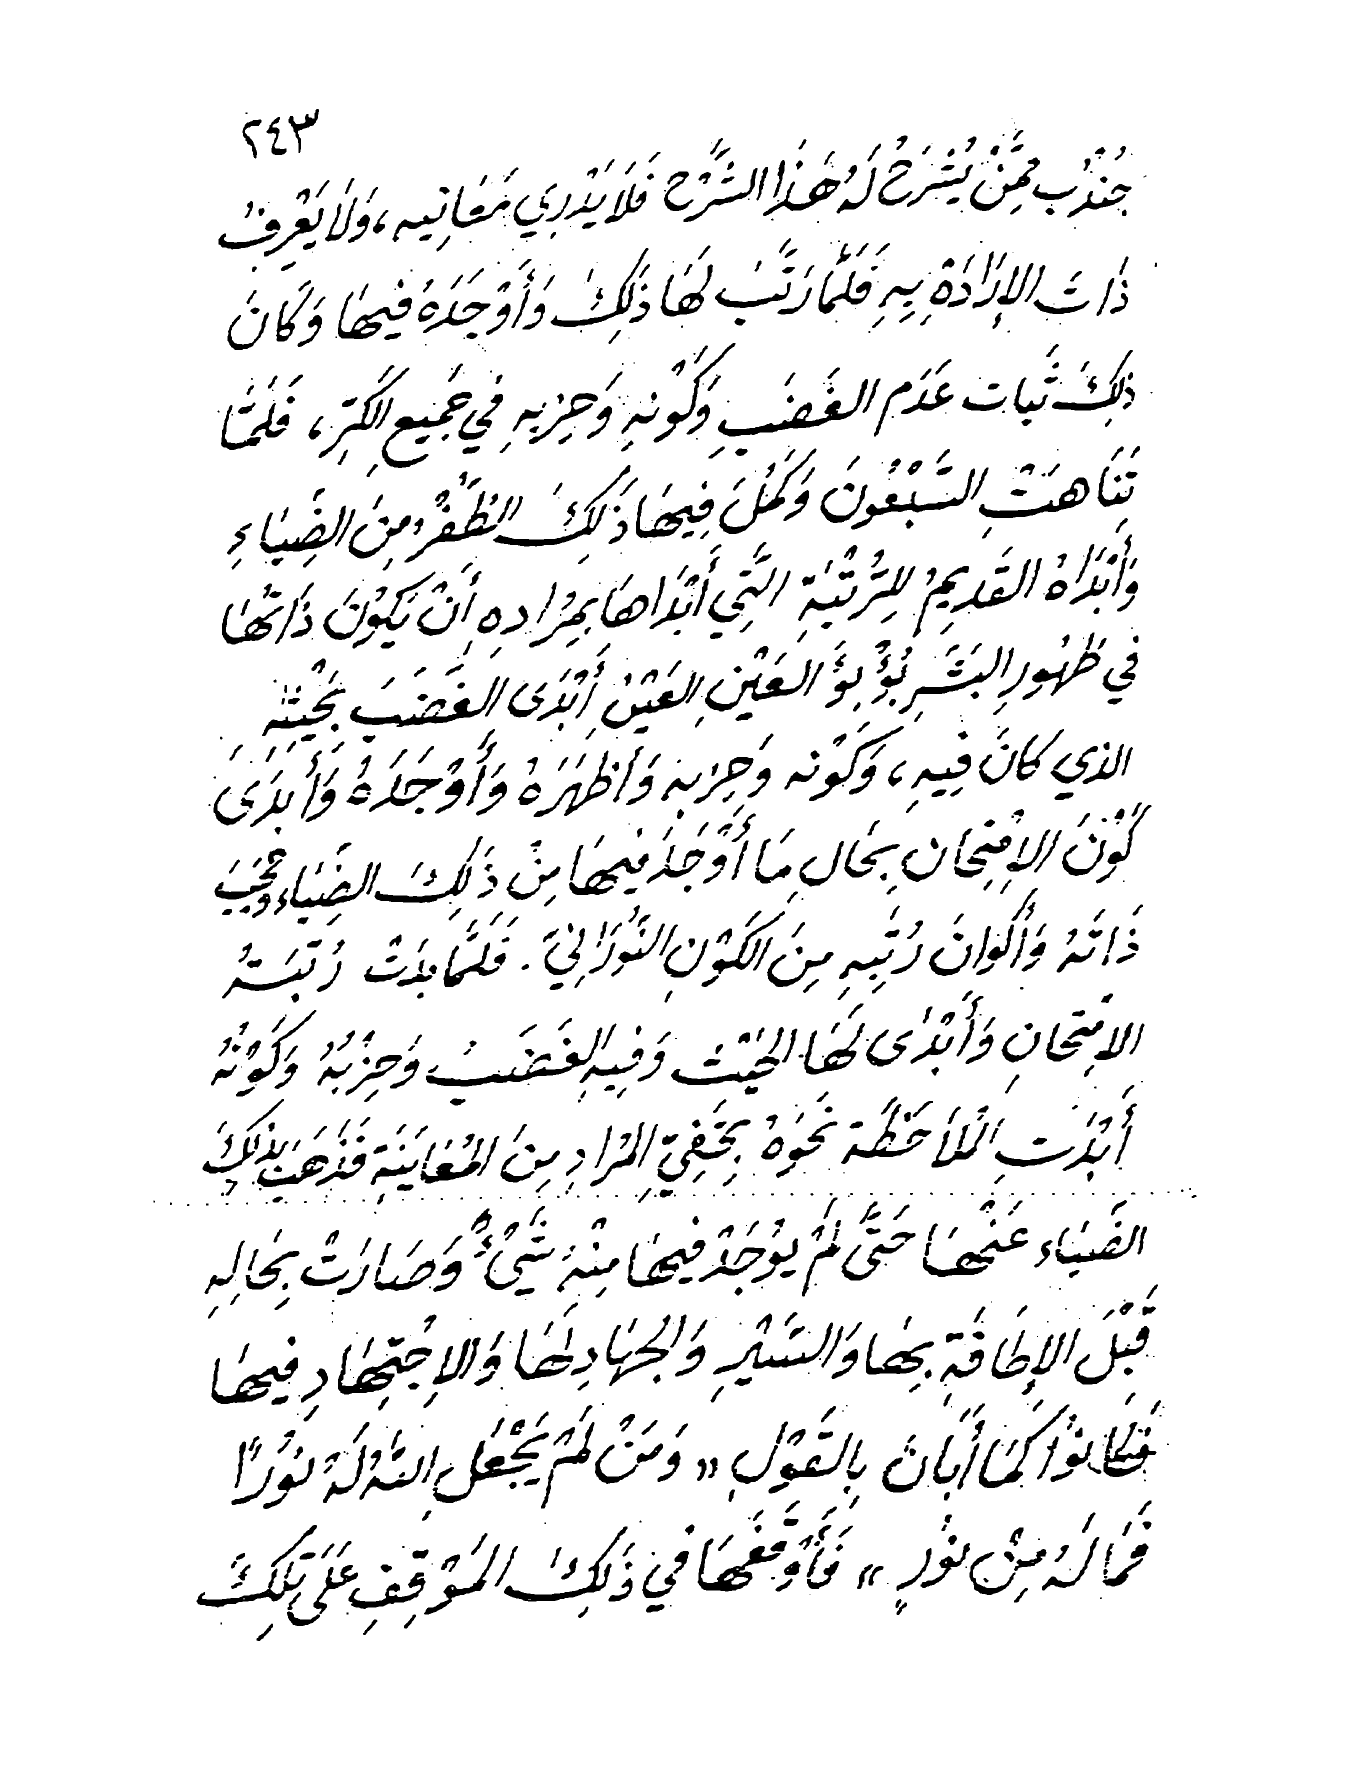 ٢٤٣
جُنْدُب مِمَّنْ يُشْرَحُ لَهُ هَذَا الشَّرْح فَلَا يَدْرِي مَعَانِيه، وَلَا يَعْرِفُ
ذَاتَ الإِرَادَةِ بِهِ فَلَمَّا رَتَّبَ لَهَا ذَلِكَ وَأَوْجَدَهُ فِيهَا وَكَانَ
ذَلِكَ ثَبات عَدَم الغَضَبِ وَكَوْنِهِ وَحِزْبِهِ فِي جَمِيعِ الكَرِّ، فَلَمَّا
تَنَاهَتِ السَّبْعُونَ وَكَمُلَ فِيهَا ذَلِكَ الظَّفْرُ مِنَ الضِّيَاءِ
وَأَبْدَاهُ القَدِيمُ لِلرُّتْبَةِ الَّتِي أَبْدَاهَا بِمُرَادِهِ أَنْ يَكُونَ ذَاتُهَا
فِي ظُهُورِ البَشَرِ بُؤْبُؤَ العَيْنِ العَيْنِ أَبْدَى الغَضَبَ بِحَيْثِهِ
الذي كَانَ فِيهِ، وَكَوْنه وَحِزْبِهِ وَأَظْهَرَهُ وَأَوْجَدَهُ وَأَبْدَى
كَوْنَ الاِمْتِحَانِ بِحَالِ مَا أَوْجَدَ فِيهَا مِنْ ذَلِكَ الضِّيَاءِ وَحَجَبَ
ذَاتَهُ وَأَكْوَانَ رُتَبِهِ مِنَ الكَوْنِ النُّورَانِيِّ. فَلَمَّا بَدَتْ رُتْبَتهُ
الاِمْتِحَانِ وَأَبْدَى لَهَا الحَيْثَ وَفِيهِ الغَضَبُ وَحِزْبُهُ وَكَوْنُهُ
أَبْدَتِ المُلَاحَظَة نَحْوَهُ بِخَفِيِّ المُرَادِ مِنَ المُعَايَنَةِ فَذَهَبَ بِذَلِكَ
الضِّيَاء عَنْهَا حَتَّى لَمْ يُوجَدْ فِيهَا مِنْهُ شَيْءٌ وَصَارَتْ بِحَالِهِ
قَبْلَ الإِطَافَةِ بِهَا وَالسَّيْرِ وَالجِهَادِ لَهَا وَالاِجْتِهَادِ فِيهَا
فَكَانُوا كَمَا أَبَانَ بِالقَوْلِ «وَمَنْ لَمْ يَجْعَلِ اللَّهُ لَهُ نُورًا
فَمَا لَهُ مِنْ نُورٍ» فَأَوْقَفَهَا فِي ذَلِكَ المَوْقِفِ عَلَى تِلْكَ